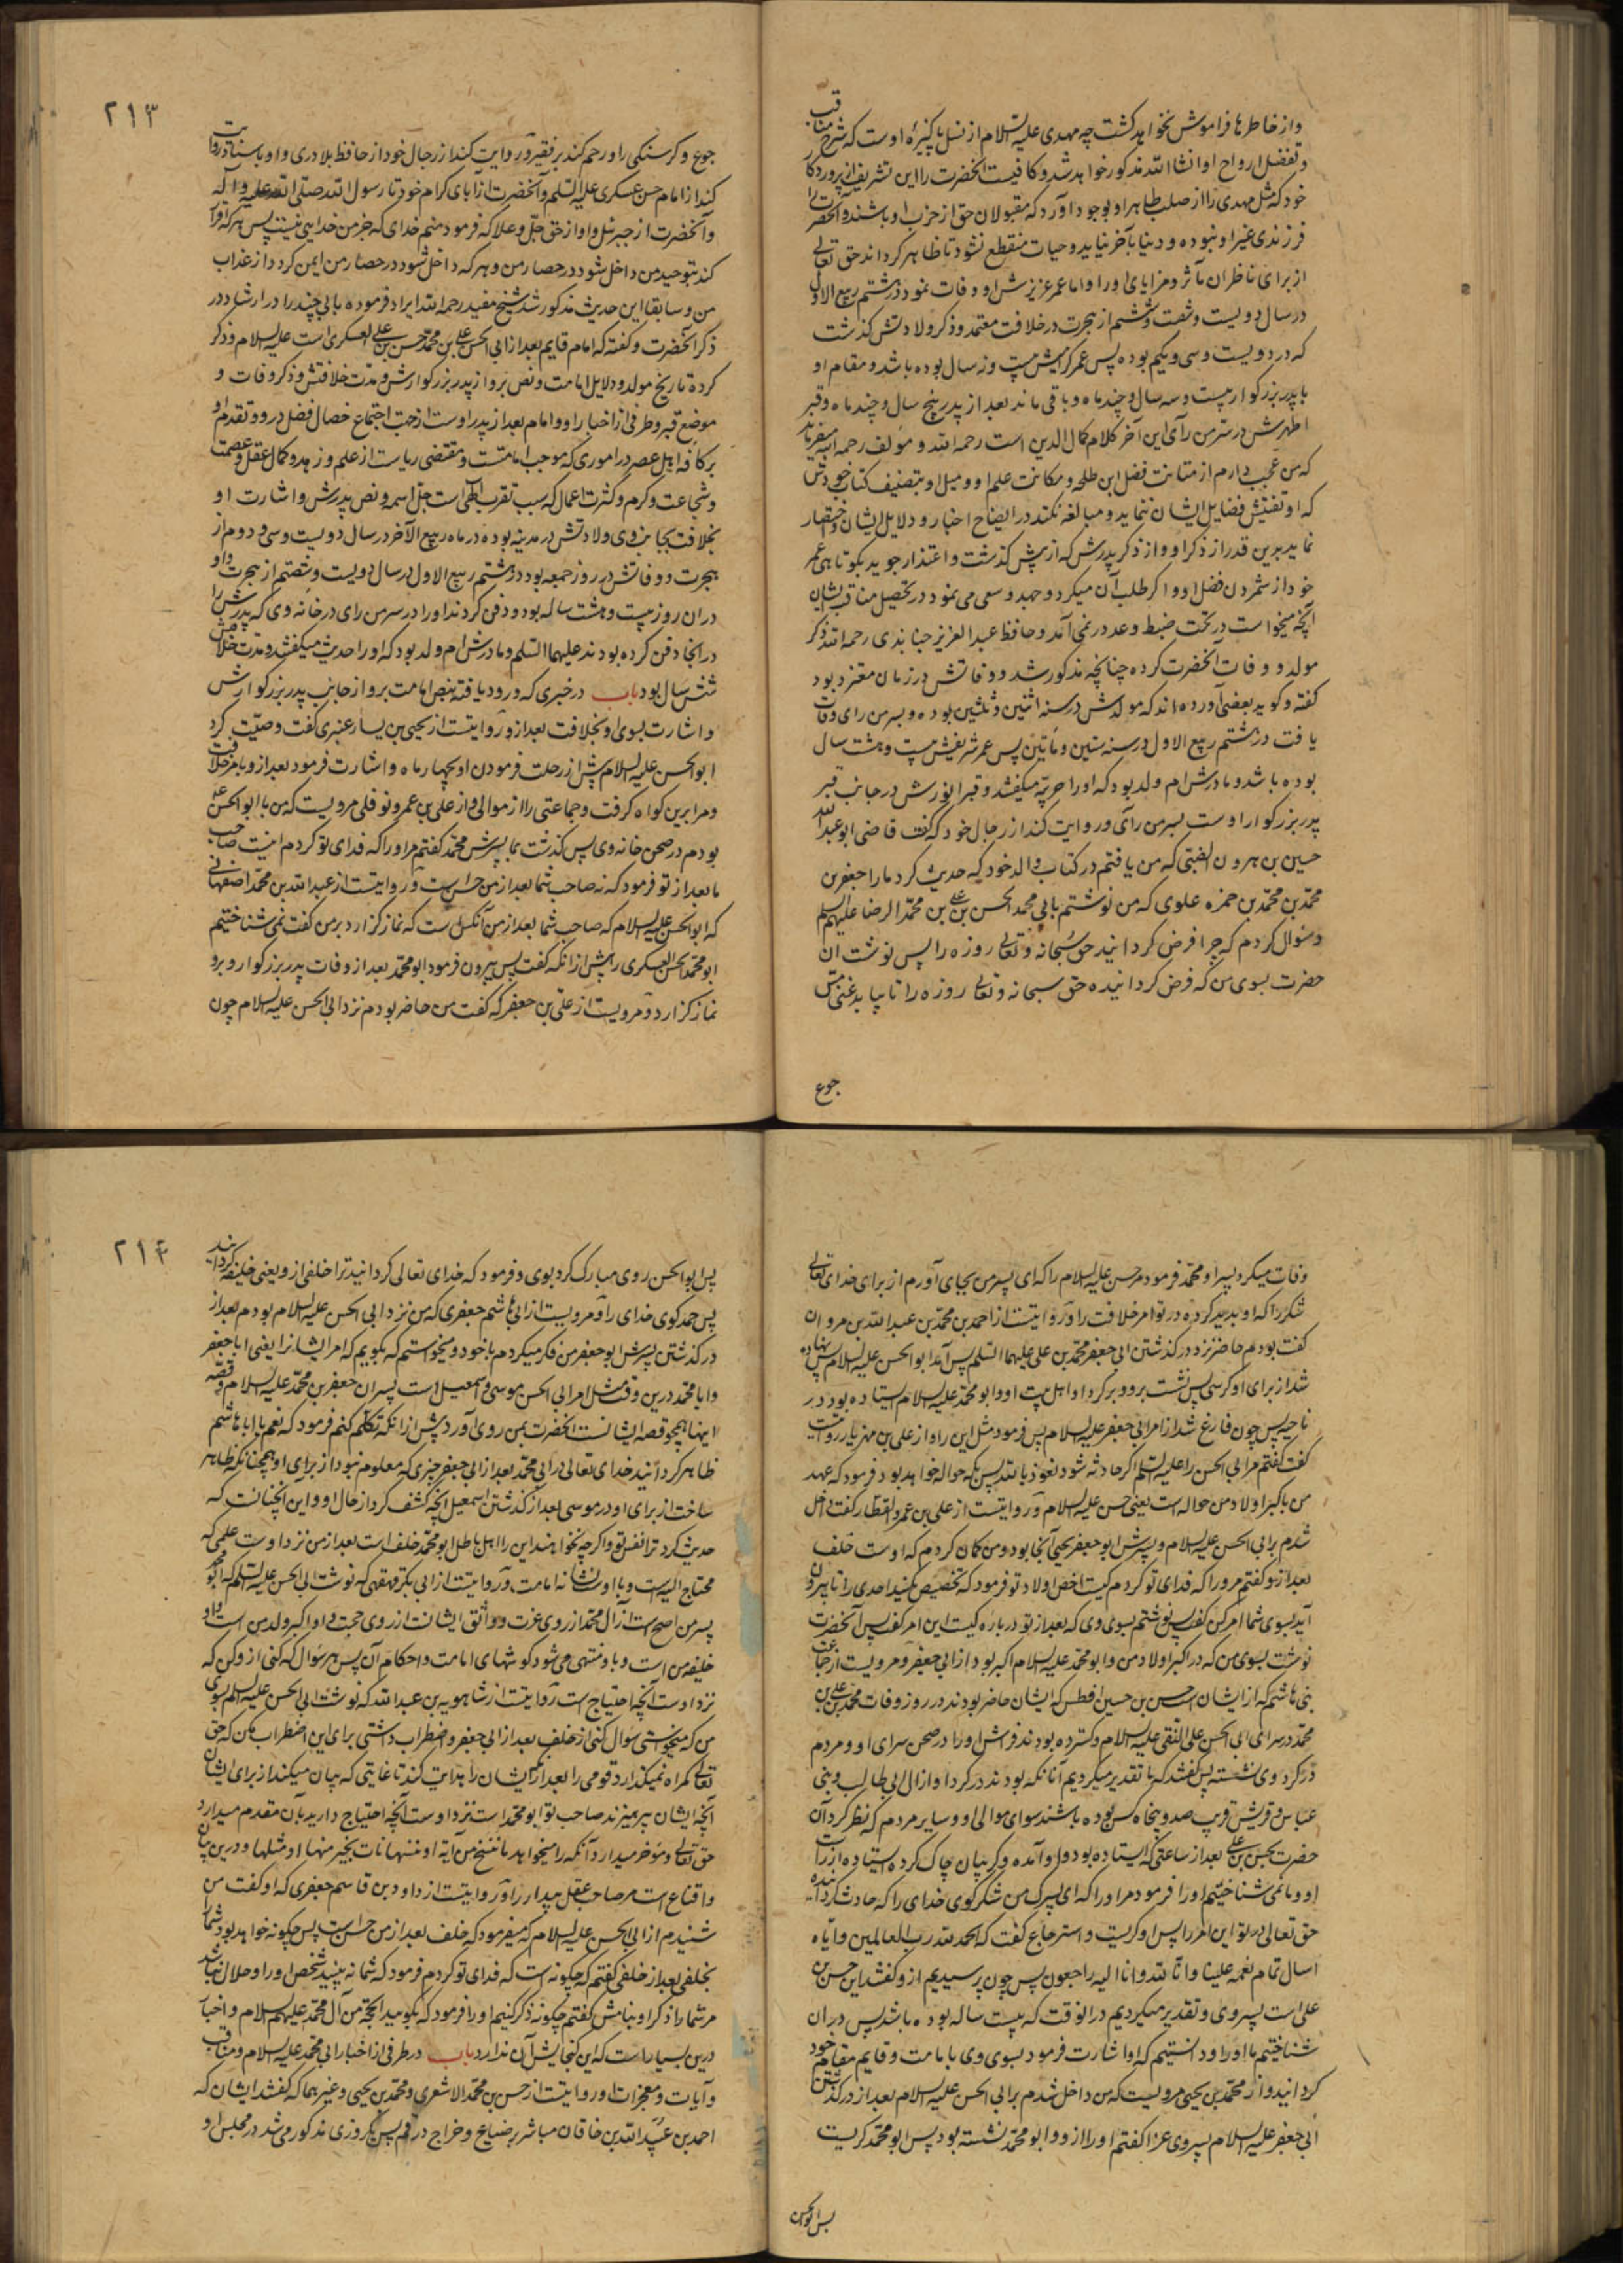 و از خاطرها فراموش نخواهد گشت چه مهدی علیه السلام از نسل پاکیزهٔ اوست که شرح مناقب
و تفضل ارواح او انشا الله مذکور خواهد شد و کافیست آنحضرت را این تشریف از پروردگار
خود که مثل مهدی را از صلب طاهر او بوجود آورد که مقبولان حق از حزب او باشند و آنحضرت را
فرزندی غیر او نبوده و دنیا بآخر نیاید و حیات منقطع نشود تا ظاهر گرداند حق تعالی
از برای ناظران مآثر و مزایای او را و اما عمر عزیزش او وفات نمود در هشتم ربیع الاول
در سال دویست و شصت و ششم از هجرت در خلافت معتمد و ذکر ولادتش گذشت
که در دویست و سی و یکم بوده پس عمر گرامیش بیست و نه سال بوده باشد و مقام او
با پدر بزرگوار بیست و سه سال و چند ماه و باقی ماند بعد از پدر پنج سال و چند ماه و قبر
اطهرش در سر من رآی این آخر کلام کمال الدین است رحمه الله و مؤلف رحمه الله میفرماید
که من عجب دارم از متانت فضل ابن طلحه و مکانت علم او و میل او بتصنیف کتاب خودش
که او تفتیش فضایل ایشان ننماید و مبالغه نکند در ایضاح اخبار و دلایل ایشان و اختصار
نماید برین قدر از ذکر او و از ذکر پدرش که از پیش گذشت و اعتذار جوید بکوتاهی عمر
خود از شمردن فضل او و اگر طلب آن میکرد و جهد و سعی می نمود در تحصیل مناقب ایشان
آنچه میخواست در تحت ضبط و عد در نمی آمد و حافظ عبد العزیز جنابذی رحمه الله ذکر
مولد و وفات آنحضرت کرده چنانچه مذکور شد و وفاتش در زمان معتز بود
گفته و گوید بعضی آورده اند که مولدش در سنه اثنین و ثلثین بوده و بسر من رای وفات
یافت در هشتم ربیع الاول در سنه ستین و مأتین پس عمر شریفش بیست و هشت سال
بوده باشد و مادرش ام ولد بود که او را حربیّه میگفتند و قبر انورش در جانب قبر
پدر بزرگوار اوست بسر من رآی و روایت کند از رجال خود که گفت قاضی ابو عبد الله
حسین بن هرون الضبی که من یافتم در کتاب والد خود که حدیث کرد ما را جعفر بن
محمّد بن محمّد بن حمزه علوی که من نوشتم بابی محمد الحسن بن علی بن محمّد الرضا علیهم السلم
و سؤال کردم که چرا فرض گردانید حق سُبحانه و تعالی روزه را پس نوشت آن
حضرت بسوی من که فرض گردانیده حق سبحانه و تعالی روزه را تا بیابد غنی مسّ
جوع
۲۱۳
جوع و گرسنگی را و رحم کند بر فقیر و روایت کند از رجال خود از حافظ بلادری و او باسناد روایت
کند از امام حسن عسکری علیه السلم و آنحضرت از آبای کرام خود تا رسول الله صلی الله علیه و آله
و آنحضرت از جبرئیل و او از حق جلّ و علا که فرمود منم خدای که جز من خدایی نیست پس هر که اقرار
کند بتوحید من داخل شود در حصار من و هر که داخل شود در حصار من ایمن گردد از عذاب
من و سابقا این حدیث مذکور شد شیخ مفید رحمه الله ایراد فرموده بابی چند را در ارشاد در
ذکر آنحضرت و گفته که امام قایم بعد از ابی الحسن علی بن محمّد حسن بن علی العسکری است علیه السلام و ذکر
کرده تاریخ مولد و دلایل امامت و نص برو از پدر بزرگوارش و مدت خلافتش و ذکر وفات و
موضع قبر و طرفی از اخبار او و امام بعد از پدر اوست از جهت اجتماع خصال فضل درو و تقدم او
بر کافه اهل عصر در اموری که موجب امامتست و مقتضی ریاست از علم و زهد و کمال عقل و عصمت
و شجاعت و کرم و کثرت اعمال که سبب تقرب الهی است جل اسمه و نص پدرش و اشارت او
بخلافت بجانب وی ولادتش در مدینه بوده در ماه ربیع الآخر در سال دویست و سی و دوم از
هجرت و وفاتش در روز جمعه بود در هشتم ربیع الاول در سال دویست و شصتم از هجرت و او
در آن روز بیست و هشت ساله بود و دفن کردند او را در سر من رای در خانه وی که پدرش را
در آنجا دفن کرده بودند علیهما السلم و مادرش ام ولد بود که او را حدیث میگفتند و مدت خلافتش
شش سال بود باب در خبری که ورود یافته بنص امامت برو از جانب پدر بزرگوارش
و اشارت بسوی او بخلافت بعد از و روایتست از یحیی بن یسار عنبری گفت وصیّت کرد
ابو الحسن علیه السلام پیش از رحلت فرمودن او بچهار ماه و اشارت فرمود بعد از و بامر خلافت
و مرا برین گواه گرفت و جماعتی را از موالی و از علی بن عمرو نوفلی مرویست که من با ابو الحسن
بودم در صحن خانه وی پس گذشت بما پسرش محمّد گفتم مر او را که فدای تو گردم اینست صاحب
ما بعد از تو فرمود که نه صاحب شما بعد از من حسن است و روایتست از عبد الله بن محمّد اصفهانی
که ابو الحسن علیه السلام که صاحب شما بعد از من آنکس است که نماز گزارد بر من گفت نمی شناختیم
ابو محمّد الحسن العسکری را پیش از آنکه گفت پس بیرون فرمود ابو محمّد بعد از وفات پدر بزرگوار و برو
نماز گزارد و مرویست از علیّ بن جعفر که گفت من حاضر بودم نزد ابی الحسن علیه السلام چون
وفات میکرد پسر او محمّد فرمود مر حسن علیه السلام را که ای پسر من بجای آورم از برای خدای تعالی
شکر را که او پدید کرده در تو امر خلافت را و روایتست از احمد بن محمّد بن عبد الله بن مروان
گفت بودم حاضر نزد در گذشتن ابی جعفر محمّد بن علی علیهما السلم پس آمد ابو الحسن علیه السلام پس نهاده
شد از برای او کرسی پس نشست برو و بر گرد او اهل بیت او و ابو محمّد علیه السلام ایستاده بود در
ناحیه پس چون فارغ شد از امر ابی جعفر علیه السلام پس فرمود مثل این را و از علی بن مهزیار روایتست
گفت گفتم مر ابی الحسن را علیه السلم اگر حادثه شود نعوذ بالله پس بکه حواله خواهد بود فرمود که عهد
من باکبر اولاد من حواله است یعنی حسن علیه السلام و روایتست از علی بن عمرو العطار گفت داخل
شدم بر ابی الحسن علیه السلام و پسرش ابو جعفر بحیّ آنجا بود و من گمان کردم که اوست خلف
بعد از و گفتم مر او را که فدای تو گردم کیست اخص اولاد تو فرمود که تخصیص مکنید احدی را تا بیرون
آید بسوی شما امر من گفت پس نوشتم بسوی وی که بعد از تو در باره کیست این امر گفت پس آنحضرت
نوشت بسوی من که در اکبر اولاد من و ابو محمّد علیه السلام اکبر بود از ابی جعفر و مرویست از جماعت
بنی هاشم که از ایشان است حسن بن حسین افطس که ایشان حاضر بودند در روز وفات محمّد بن علی بن
محمّد در سرای ابی الحسن علی النقی علیه السلام و گسترده بودند فرش او را در صحن سرای او و مردم
در گرد وی نشسته پس گفتند که ما تقدیر میکردیم آنانکه بودند در گرد او از آل ابی طالب و بنی
عباس و قریش قریب صد و پنجاه کس بوده باشند سوای موالی او و سایر مردم که نظر کرد آن
حضرت بحسن بن علی بعد از ساعتی که ایستاده بود و او آمده و گریبان چاک کرده ایستاده از راست
او و ما نمی شناختیم او را فرمود مر او را که ای پسرک من شکر گوی خدای را که حادث گردانیده
حق تعالی در تو این امر را پس او گریست و استرجاع گفت که الحمد لله رب العالمین و ایّاه
اسال تمام نعمه علینا و انّا لله و انا الیه راجعون پس چون پرسیدیم از و گفتند این حسن بن
علی است پسر وی و تقدیر میکردیم در آنوقت که بیست ساله بوده باشد پس در آن
شناختیم ما او را و دانستیم که او اشارت فرمود بسوی وی بامامت و قایم مقام خود
گردانید و از محمّد بن یحیی مرویست که من داخل شدم بر ابی الحسن علیه السلام بعد از در گذشتن
ابی جعفر علیه السلام پسر وی عزا گفتم او را از و و ابو محمّد نشسته بود پس ابو محمّد گریست
پس ابو الحسن
۲۱۴
پس ابو الحسن روی مبارک کرد بوی و فرمود که خدای تعالی گردانید ترا خلفی از و یعنی خلیفه گردانید
پس حمد گوی خدای را و مرویست از ابی هاشم جعفری که من نزد ابی الحسن علیه السلام بودم بعد از
در گذشتن پسرش ابو جعفر من فکر میکردم با خود و میخواستم که بگویم که امر ایشانرا یعنی ابا جعفر
و ابا محمّد درین وقت مثل امر ابی الحسن موسی و اسمعیل است پسران جعفر بن محمّد علیه السلام و قصّه
اینها همچو قصه ایشانست آنحضرت بمن روی آورد پیش از آنکه تکلم کنم فرمود که نعم یا ابا هاشم
ظاهر گردانید خدای تعالی در ابی محمّد بعد از ابی جعفر چیزی که معلوم نبود از برای او همچنانکه ظاهر
ساخت از برای او در موسی بعد از گذشتن اسمعیل آنچه کشف کرد از حال او و این آنچنانست که
حدیث کرد ترا نفس تو و اگر چه نخواهند این را اهل باطل ابو محمّد خلف است بعد از من نزد اوست علمی که
محتاج الیه است و با اوست نشانه امامت و روایتست از ابی بکر فهفکی که نوشت ابی الحسن علیه السلم که ابو محمّد
پسر من اصح است از آل محمّد از روی غرت و اوثق ایشانست از روی حجت و او اکبر ولد من است و او
خلیفه من است و با و منتهی می شود گوشهای امامت و احکام آن پس هر سؤال که کنی از و کن که
نزد اوست آنچه احتیاج است و روایتست از شاهویه بن عبد الله که نوشت ابی الحسن علیه السلم بسوی
من که میخواستی سؤال کنی از خلف بعد از ابی جعفر و اضطراب داشتی برای این اضطراب مکن که حق
تعالی گمراه نمیگذارد قومی را بعد از آنکه ایشان را هدایت کند تا غایتی که بیان میکند از برای ایشان
آنچه ایشان بپرهیزند صاحب تو ابو محمّد است نزد اوست آنچه احتیاج دارید بآن مقدم میدارد
حق تعالی و مؤخر میدارد آنکه را میخواهد ما ننسخ من آیة او ننسها نات بخیر منها او مثلها و درین بیان
و اقناع است مر صاحب عقل بیدار را و روایتست از داود بن قاسم جعفری که او گفت من
شنیدم از ابی الحسن علیه السلام که میفرمود که خلف بعد از من حسن است پس چگونه خواهد بود شما را
بخلفی بعد از خلفی گفتم که چگونه است که فدای تو گردم فرمود که شما نه بینید شخص او را و حلال نباشد
مر شما را ذکر او بنامش گفتم چگونه ذکر کنیم او را فرمود که بگویید الحجّة من آل محمّد علیهم السلام و اخبار
درین بسیار است که این گنجایش آن ندارد باب در طرفی از اخبار ابی محمّد علیه السلام و مناقب
و آیات و معجزات او روایتست از حسن بن محمّد الاشعری و محمّد بن یحیی و غیرهما که گفتند ایشان که
احمد بن عبید الله بن خاقان مباشر بر ضیاع و خراج در قم پس یکروزی مذکور می شد در مجلس او